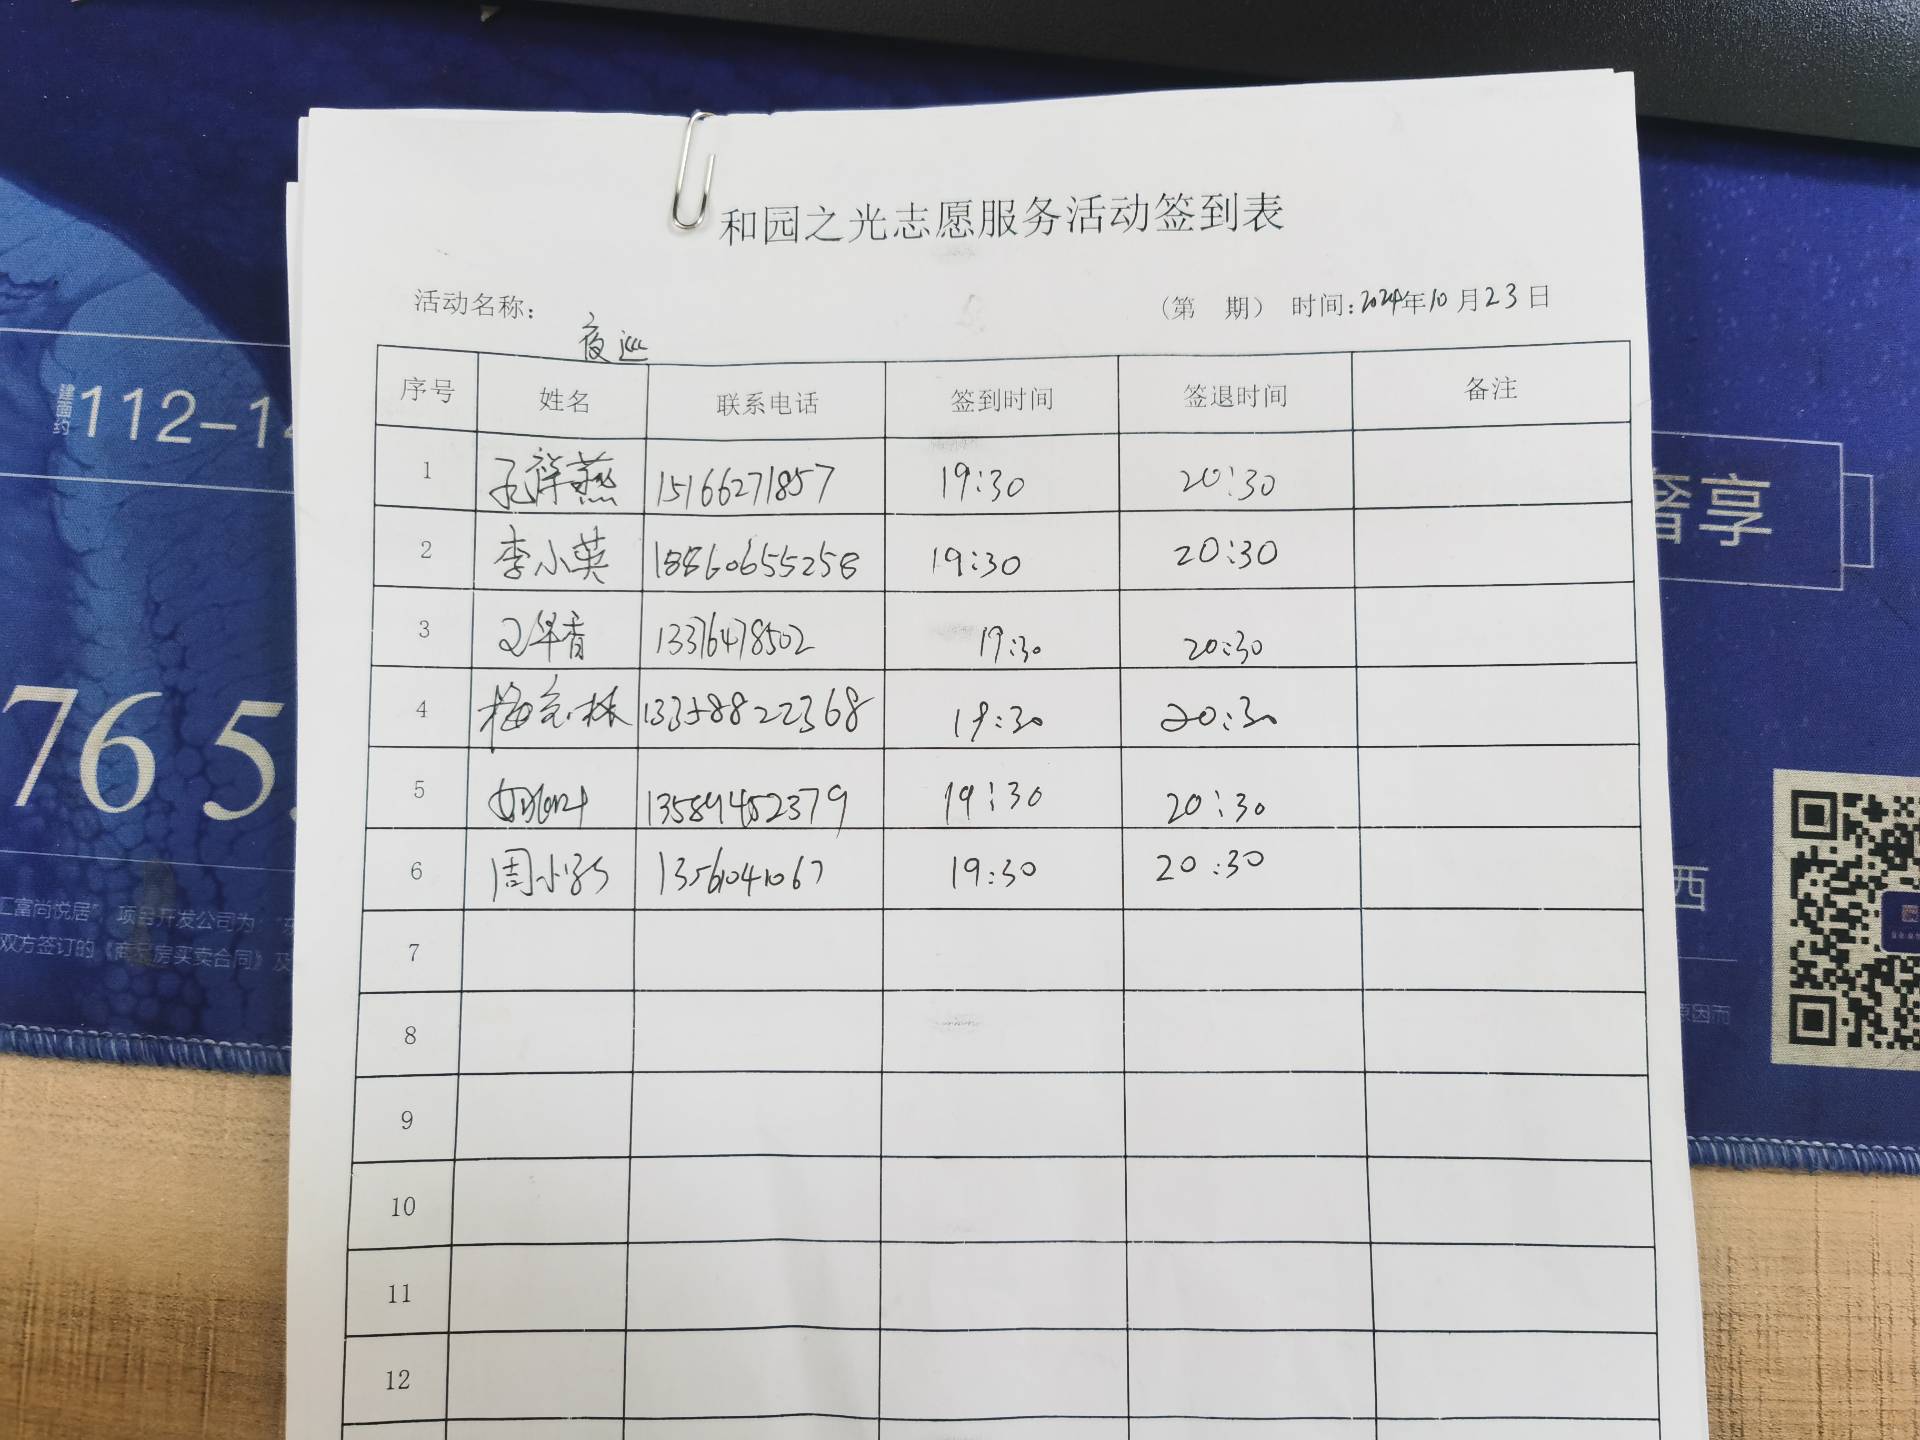 和园之光志愿服务活动签到表
活动名称： 夜巡 （第 期） 时间：2024年10月23日
序号 姓名 联系电话 签到时间 签退时间 备注
1 孔祥燕 15166271857 19:30 20:30
2 李小英 18860655258 19:30 20:30
3 13376478502 19:30 20:30
4 13358822368 19:30 20:30
5 13589452379 19:30 20:30
6 周小 13561041067 19:30 20:30
7
8
9
10
11
12
建面约112-14
76 5
汇富尚悦居”，项目开发公司为
双方签订的《商品房买卖合同》及
奢享
西
原因而